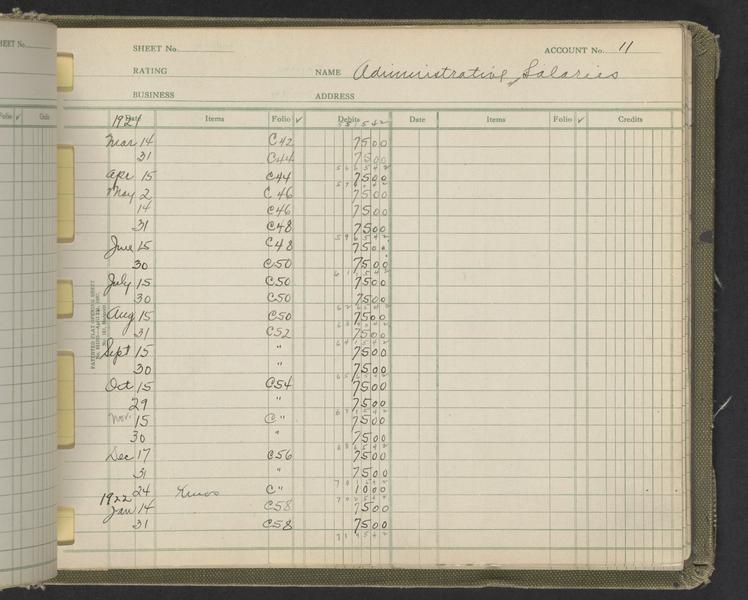 SHEET No.
ACCOUNT No. 11
RATING
NAME Administrative Salaries
BUSINESS
ADDRESS
Date Items Folio ✓ Debits Date Items Folio ✓ Credits
1921
Mar 14 C42 7500
31 C44 7500
Apr 15 C44 7500
May 2 C46 7500
14 C46 7500
31 C48 7500
June 15 C48 7500
30 C50 7500
July 15 C50 7500
30 C50 7500
Aug 15 C50 7500
31 C52 7500
Sept 15 " 7500
30 " 7500
Oct 15 C54 7500
29 " 7500
Nov. 15 C " 7500
30 " 7500
Dec 17 C56 7500
31 " 7500
24 Xmas C " 1000
1922
Jan 14 C58 7500
31 C58 7500